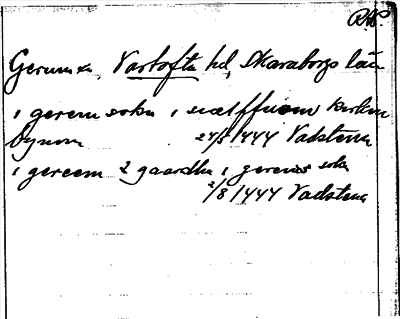 RAP.
Gerum sn, Vartofta hd, Skaraborgs län
i gerem sokn i næst ffræm kirkiu
bynom 24/5 1444 Vadstena
i gereem 2 gaardha i gerems sokn
2/8 1444 Vadstena